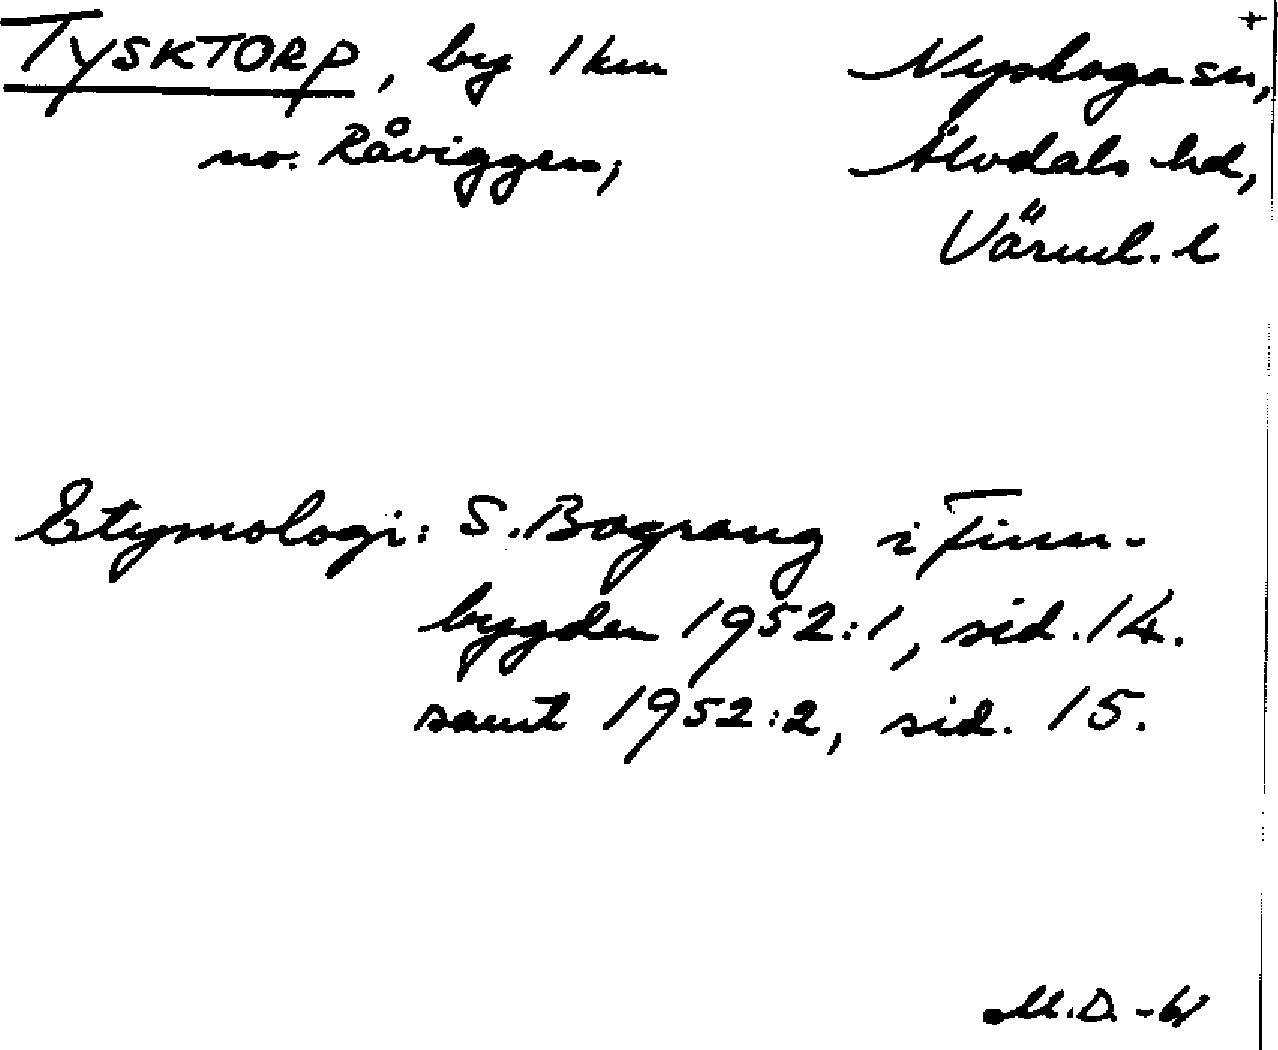 +
TYSKTORP, by 1 km
no. Råviggen,
Nyskoga sn,
Älvdals hd,
Värml. l
Etymologi: S. Bograng i Finn-
bygden 1952:1, sid. 14.
samt 1952:2, sid. 15.
M.D. -61